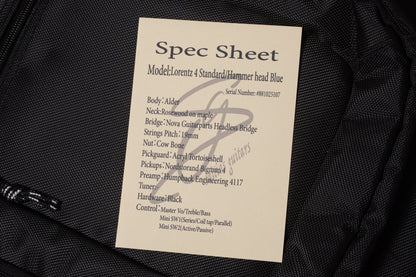 Spec Sheet
Model:Lorentz 4 Standard/Hammer head Blue
Serial Number: #881025107
Body：Alder
Neck:Rosewood on maple
Bridge：Nova Guitarparts Headless Bridge
Strings Pitch：19mm
Nut：Cow Bone
Pickguard：Acryl Tortoiseshell
Pickups：Nordstrand Bigrum 4
Preamp：Humpback Engineering 4117
Tuner：
Hardware：Black
Control：Master Vo/Treble/Bass
Mini SW1(Series/Coil tap/Parallel)
Mini SW2(Active/Passive)
guitars